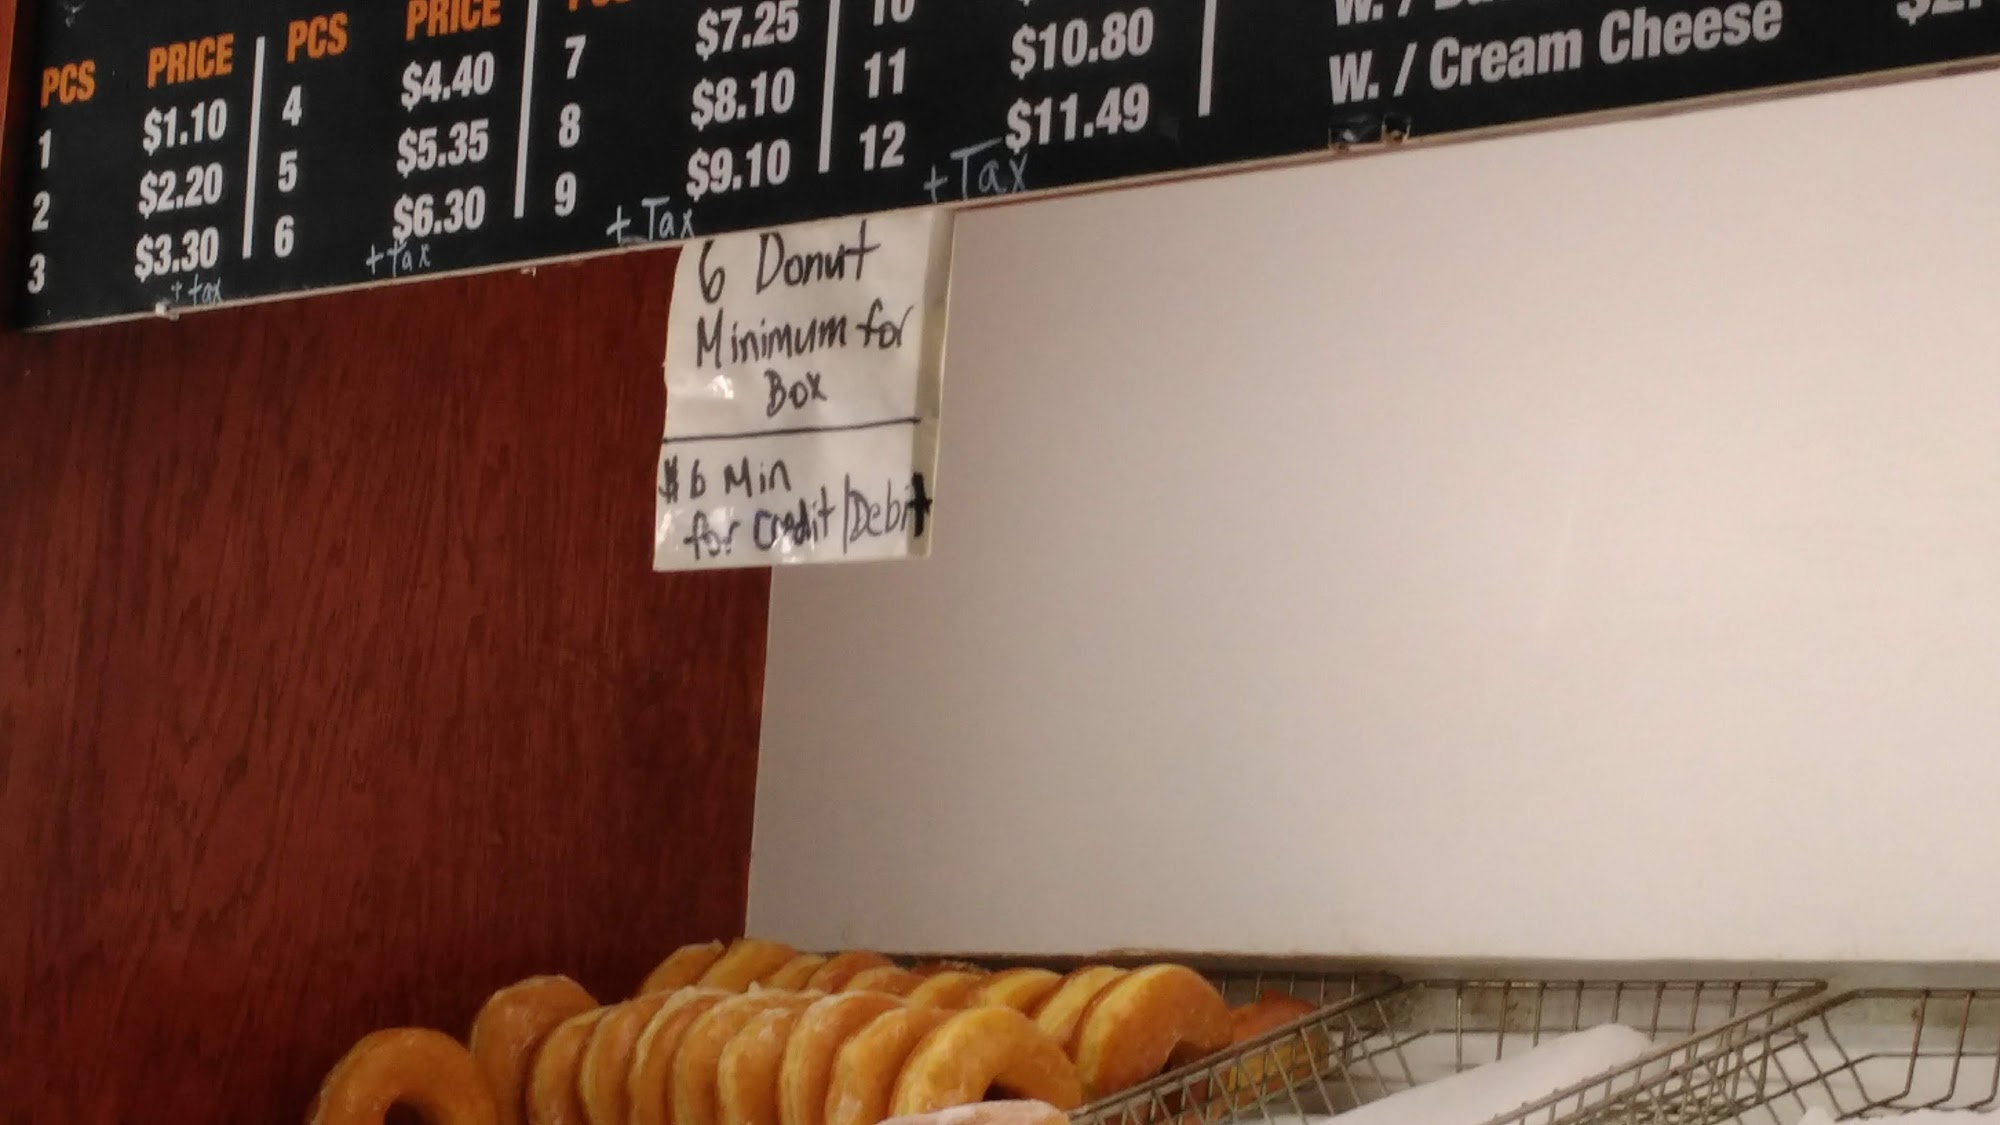 PCS PRICE
1 $1.10
2 $2.20
3 $3.30
+ tax
PCS PRICE
4 $4.40
5 $5.35
6 $6.30
+ tax
7 $7.25
8 $8.10
9 $9.10
+ Tax
10
11 $10.80
12 $11.49
+ Tax
W. /
W. / Cream Cheese
6 Donut
Minimum for
Box
$6 Min
for Credit/Debit